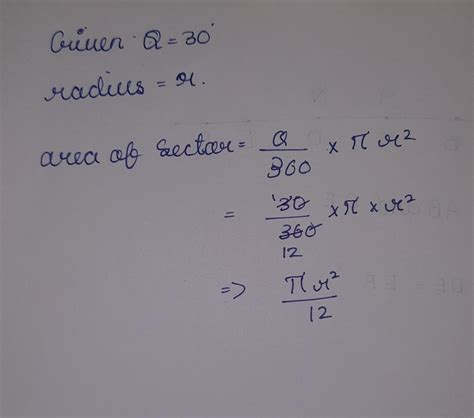 Given Q = 30°
radius = r.
area of Sector = Q/360 × π r²
= 30/360 × π × r²
1 12
=> π r²/12